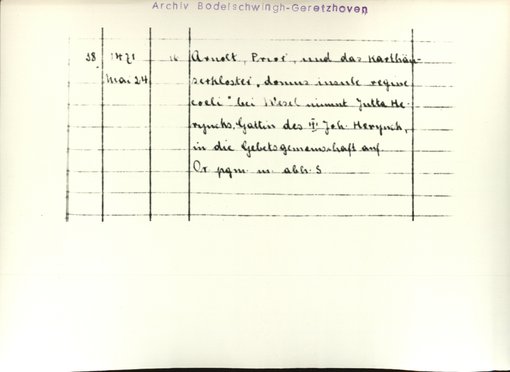 Archiv Bodelschwingh-Geretzhoven
38 1471 16 Arnolt, Prior, und das Karthäu-
Mai 24 serkloster „domus insule regine
coeli" bei Wesel nimmt Jutta He-
ryncks, Gattin des Joh. Herynck,
in die Gebetsgemeinschaft auf.
Or pgm m. abh. S